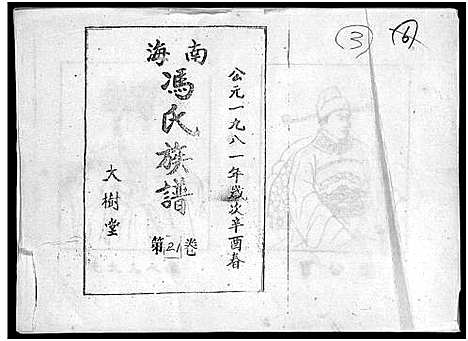 ③ 6
公元一九八一年歲次辛酉春
南海
馮氏族譜
第21卷
大樹堂